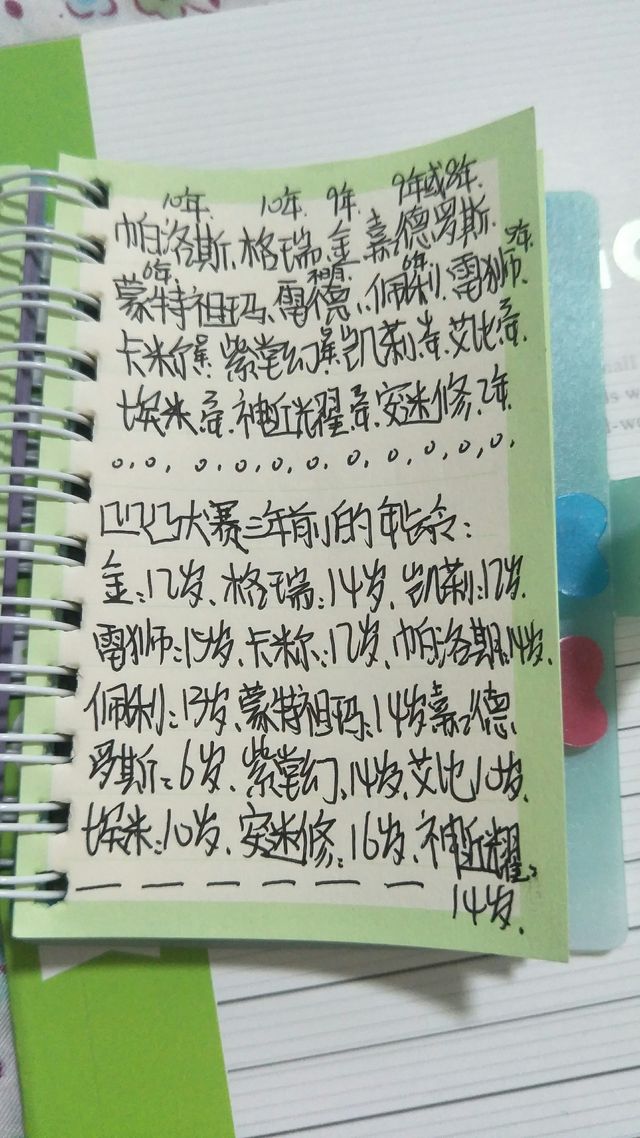 10年 10年 9年 9年或8年
帕洛斯、格瑞、金、嘉德罗斯、
6年 6年 9年
蒙特祖玛、雷德、佩利、雷狮、
卡米尔 紫堂幻 凯莉 艾比
埃米 神近耀 安迷修、2年
。。。。。。。。。。。
凹凸大赛三年前的年龄：
金：12岁、格瑞：14岁、凯莉：12岁、
雷狮：15岁、卡米尔：12岁、帕洛斯：14岁、
佩利：13岁、蒙特祖玛：14岁、嘉德
罗斯：6岁、紫堂幻、14岁、艾比10岁、
埃米：10岁、安迷修：16岁、神近耀：
14岁、